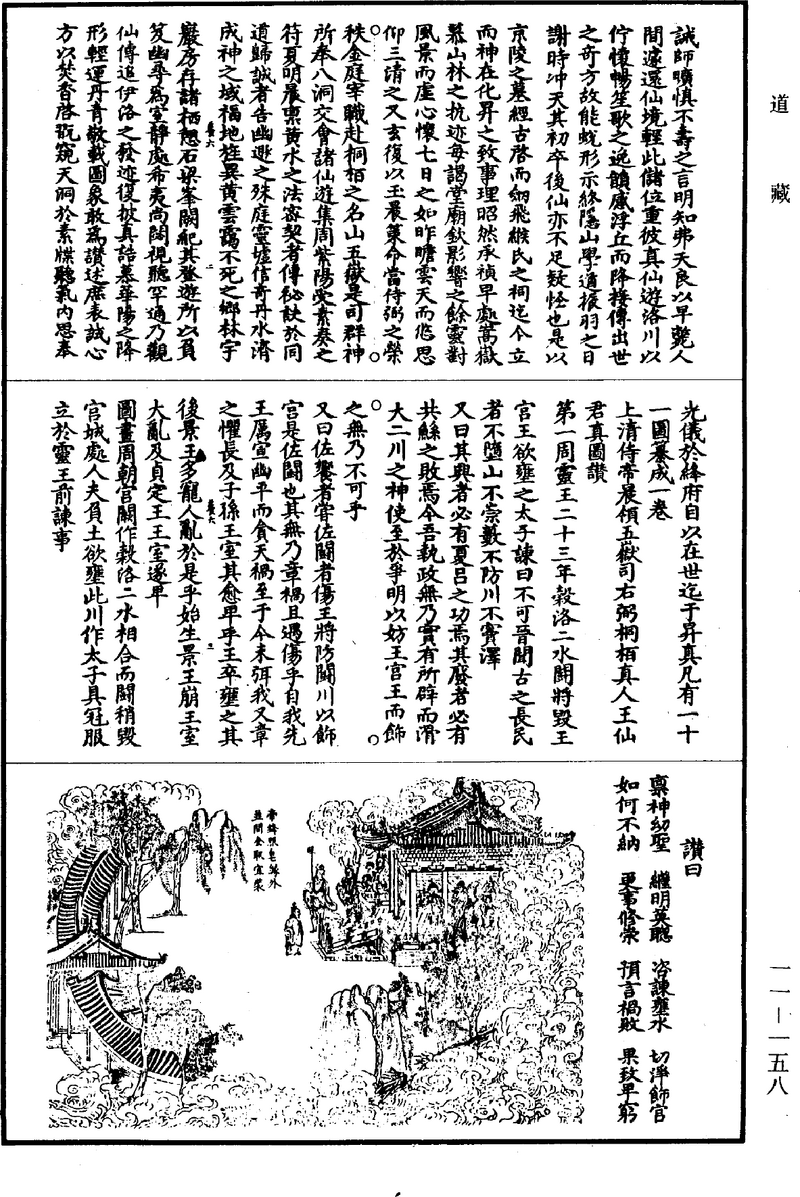 道藏
誠師曠慎不壽之言明知弗天良以早薨人
間遽還仙境輕此儲位重彼真仙遊洛川以
佇懷暢笙歌之逸韻感浮丘而降接傳出世
之奇方故能蛻形示終隱山學道揆羽之日
謝時沖天其初卒後仙亦不足疑怪也是以
京陵之墓經古啓而劒飛緱氏之祠迄今立
而神在化昇之致事理昭然承禎早處嵩嶽
繫山林之抗迹每謁堂廟欽影響之餘靈對
風景而虛心懷七日之如昨瞻雲天而恣思
仰三清之又玄復以玉晨策命當侍弼之榮
秩金庭宰職赴桐栢之名山五嶽是司群神
所奉八洞交會諸仙遊集周紫陽受素奏之
符夏明晨稟黃水之法密契者傳祕訣於同
道歸誠者告幽遯之殊庭靈墟信奇丹水濟
成神之域福地旌異黃雲靄不死之鄉林宇
巖房存諸栖憩石梁峯闕紀其登遊所以負
笈幽尋爲室靜處希夷尚闊視聽罕通乃觀
仙傳追伊洛之發迹復披真誥慕華陽之降
形輕運丹青敬載圖象敢爲讚述庶表誠心
方以焚香啓翫窺天洞於素牒聽氣內思奉
光儀於絳府自以在世迄于昇真凡有一十
一圖纂成一卷
上清侍帝晨領五嶽司右弼桐栢真人王仙
君真圖讚
第一周靈王二十三年穀洛二水鬪將毀王
宮王欲壅之太子諫曰不可晉聞古之長民
者不墮山不崇藪不防川不竇澤
又曰其興者必有夏呂之功焉其廢者必有
共鯀之敗焉今吾執政無乃實有所辟而滑
夫二川之神使至於爭明以妨王宮王而飾
之無乃不可乎
又曰佐饔者甞佐鬪者傷王將防鬪川以飾
宮是佐鬪也其無乃章禍且遇傷乎自我先
王厲宣幽平而貪天禍至于今未弭我又章
之懼長及子孫王室其愈卑乎王卒壅之其
後景王多寵人亂於是乎始生景王崩王室
大亂及貞定王王室遂卑
圖畫周朝宮闕作穀洛二水相合而鬪稍毀
宮城處人夫負土欲壅此川作太子具冠服
立於靈王前諫事
讚曰
稟神幼聖 纘明英聰 咨諫壅水 切淨飾宮
如何不納 更事修崇 預言禍敗 果致卑窮
一一—一五八